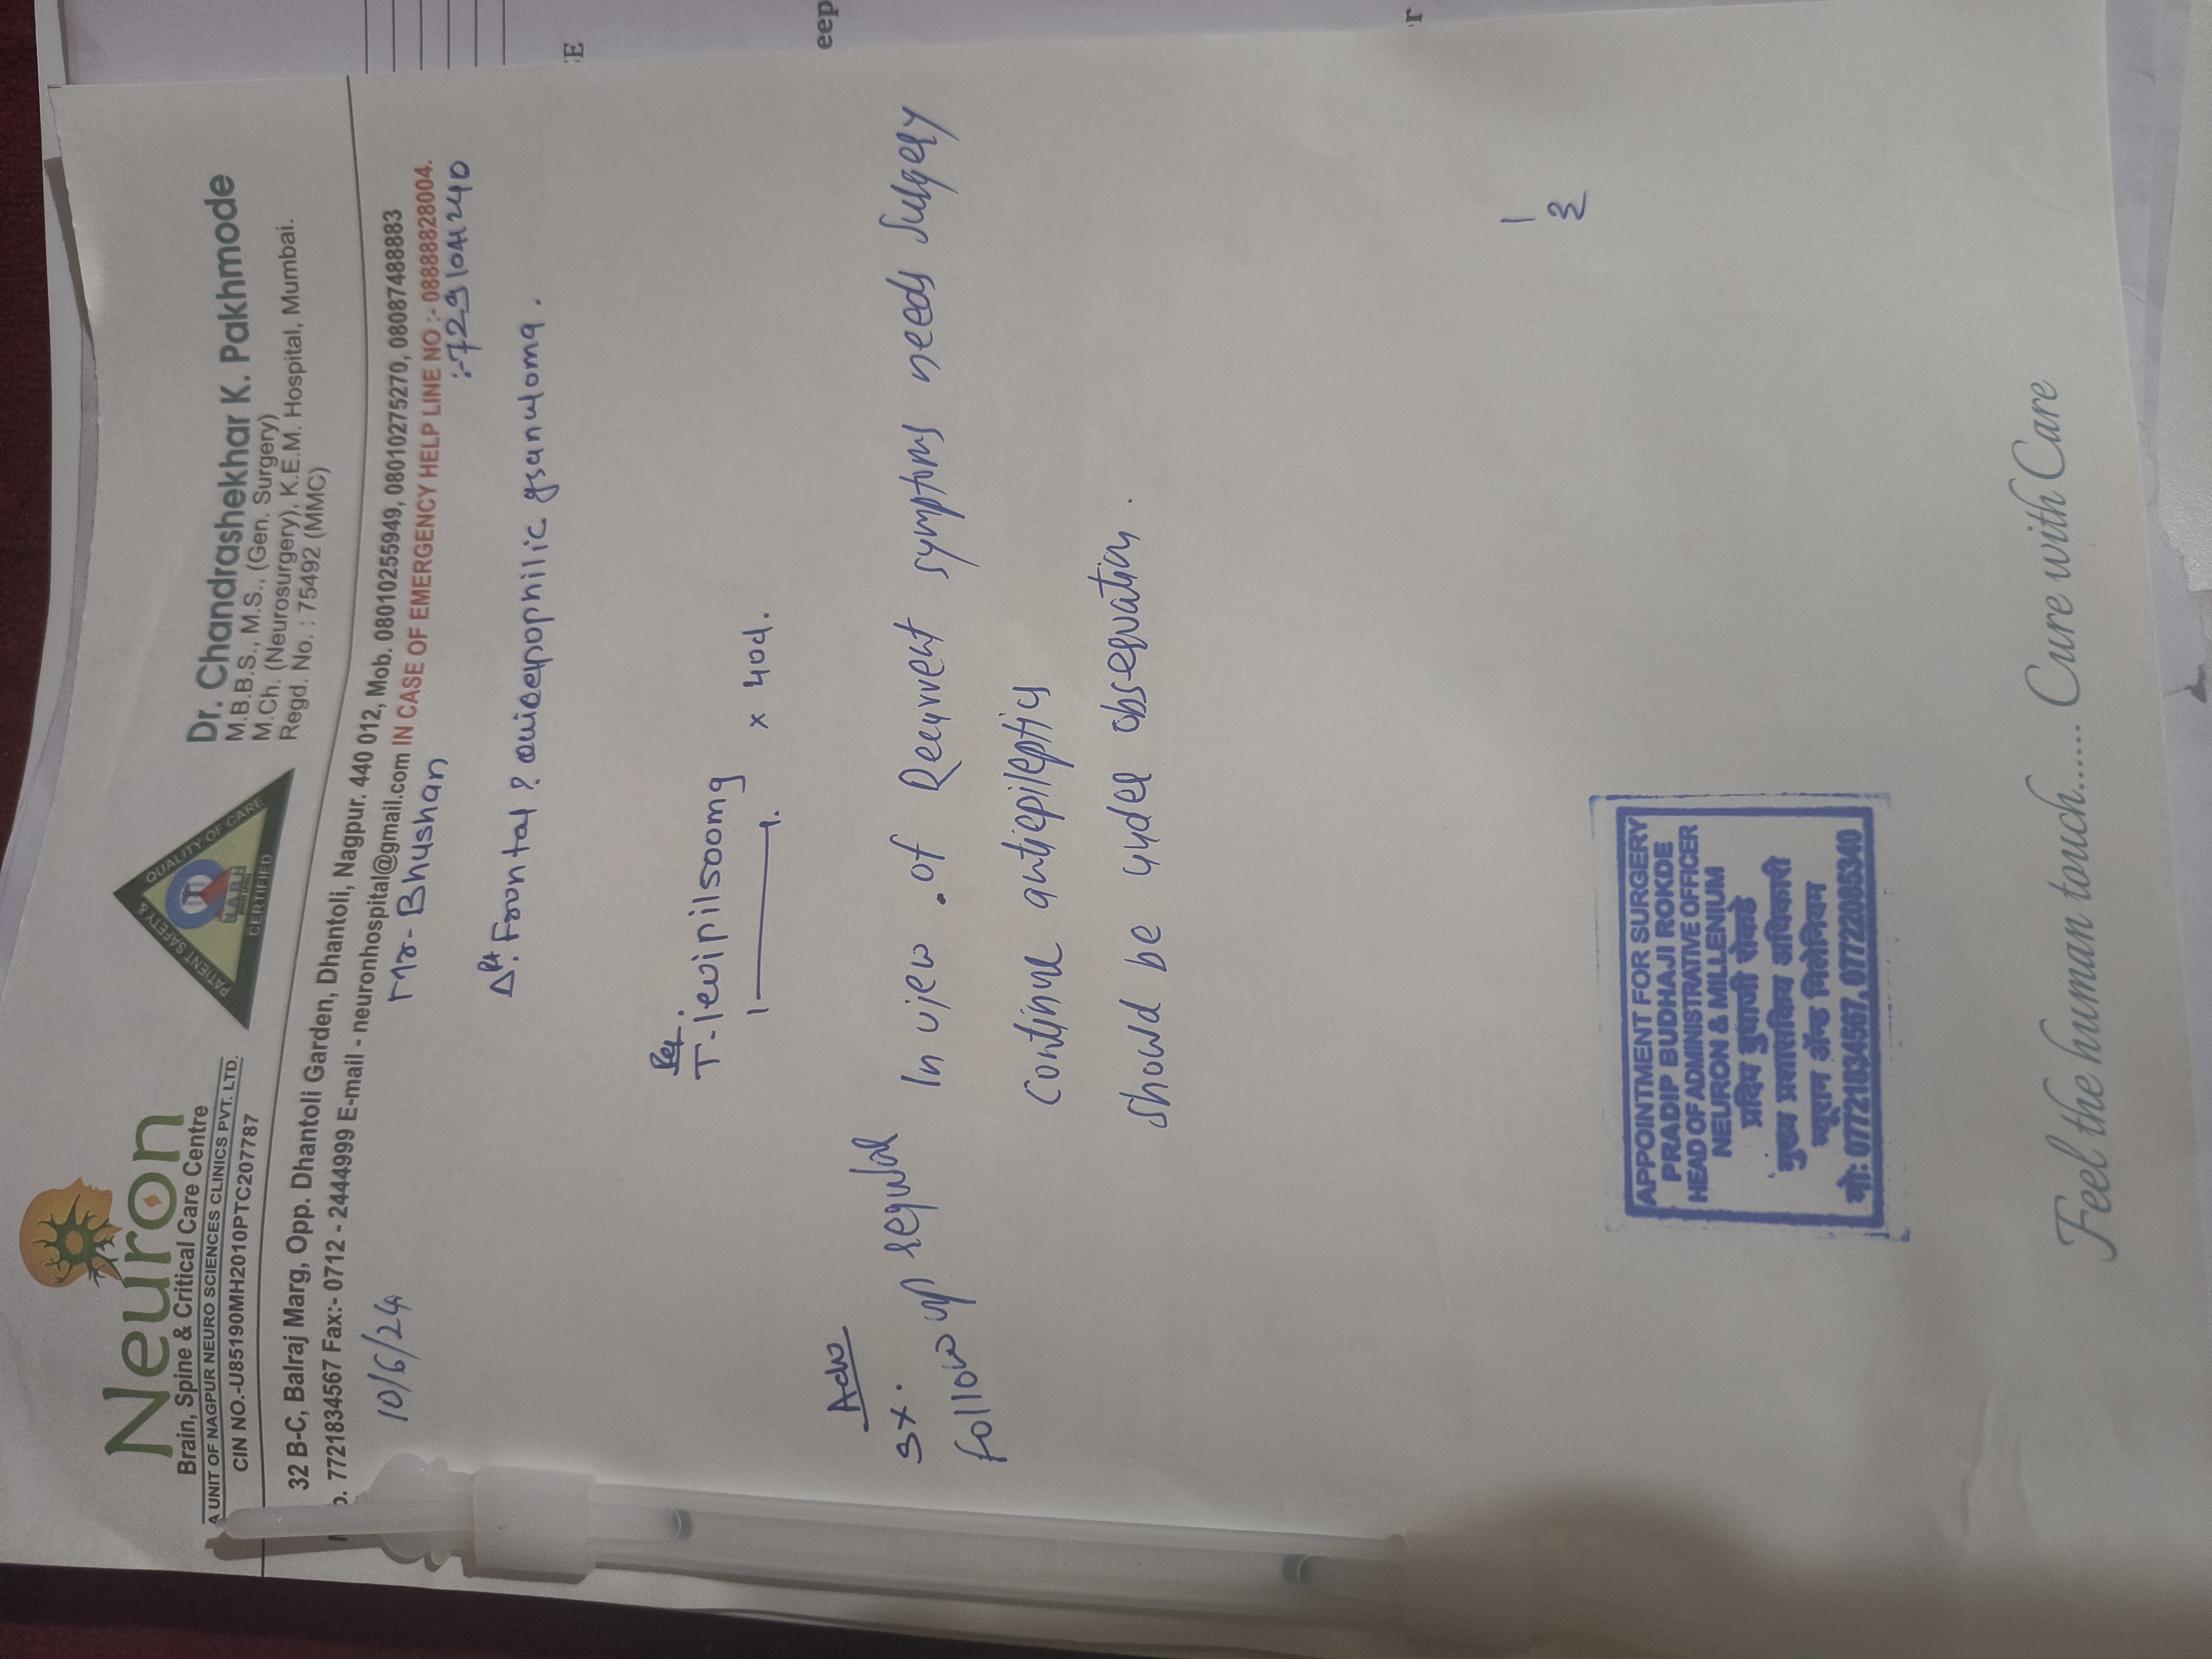 Neuron
Brain, Spine & Critical Care Centre
A UNIT OF NAGPUR NEURO SCIENCES CLINICS PVT. LTD.
CIN NO.-U85190MH2010PTC207787
PATIENT SAFETY & QUALITY OF CARE
NABH
CERTIFIED
Dr. Chandrashekhar K. Pakhmode
M.B.B.S., M.S., (Gen. Surgery)
M.Ch. (Neurosurgery), K.E.M. Hospital, Mumbai.
Regd. No. : 75492 (MMC)
32 B-C, Balraj Marg, Opp. Dhantoli Garden, Dhantoli, Nagpur. 440 012, Mob. 08010255949, 08010275270, 08087488883
7721834567 Fax:- 0712 - 2444999 E-mail - neuronhospital@gmail.com IN CASE OF EMERGENCY HELP LINE NO :- 08888828004.
10/6/24
Mr- Bhushan
Frontal ? granuloma.
T-levipil 500mg
1 1. x 40d.
Adv
Sx.
follow up regular
In view of Recurrent symptoms needs surgery
Continue antiepileptics
should be under observation.
1
2
APPOINTMENT FOR SURGERY
PRADIP BUDHAJI ROKDE
HEAD OF ADMINISTRATIVE OFFICER
NEURON & MILLENIUM
प्रदिप बुधाजी रोकडे
मुख्य प्रशासकिय अधिकारी
न्यूरान ॲन्ड मिलेनियम
मो: 07721834567, 07722085340
Feel the human touch..... Cure with Care
E
eep
r